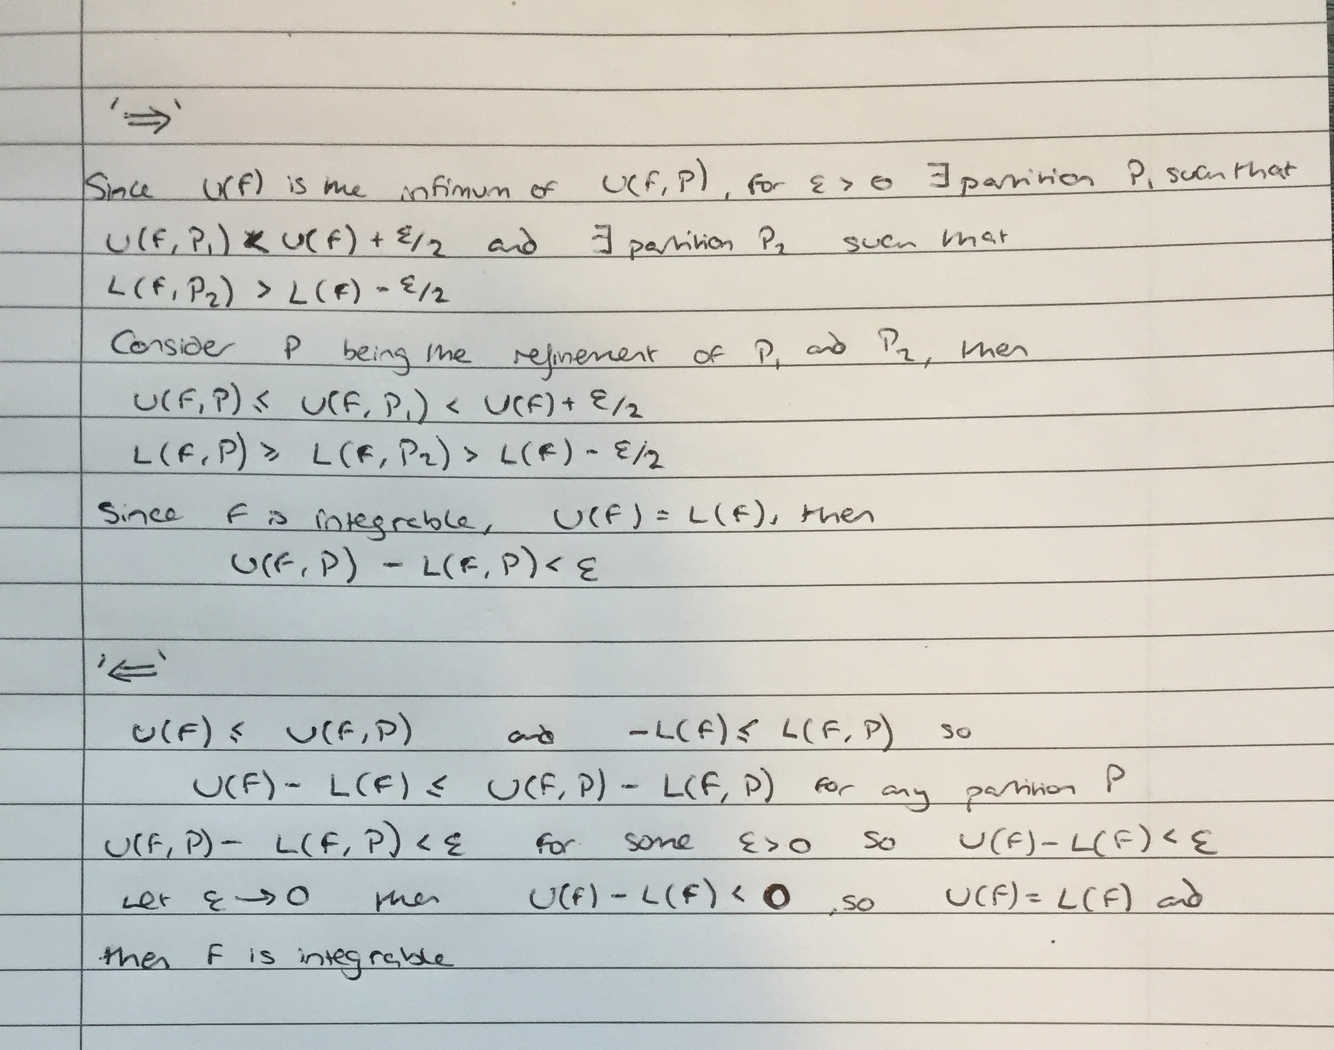 '⇒'
Since U(f) is the infimum of U(f,P), for ε > 0 ∃ partition P₁ such that
U(f,P₁) < U(f) + ε/2 and ∃ partition P₂ such that
L(f,P₂) > L(f) - ε/2
Consider P being the refinement of P₁ and P₂, then
U(f,P) ≤ U(f,P₁) < U(f) + ε/2
L(f,P) ≥ L(f,P₂) > L(f) - ε/2
Since f is integrable, U(f) = L(f), then
U(f,P) - L(f,P) < ε
'⇐'
U(f) ≤ U(f,P) and -L(f) ≤ L(f,P) so
U(f) - L(f) ≤ U(f,P) - L(f,P) for any partition P
U(f,P) - L(f,P) < ε for some ε>0 so U(f) - L(f) < ε
Let ε → 0 then U(f) - L(f) < 0, so U(f) = L(f) and
then f is integrable